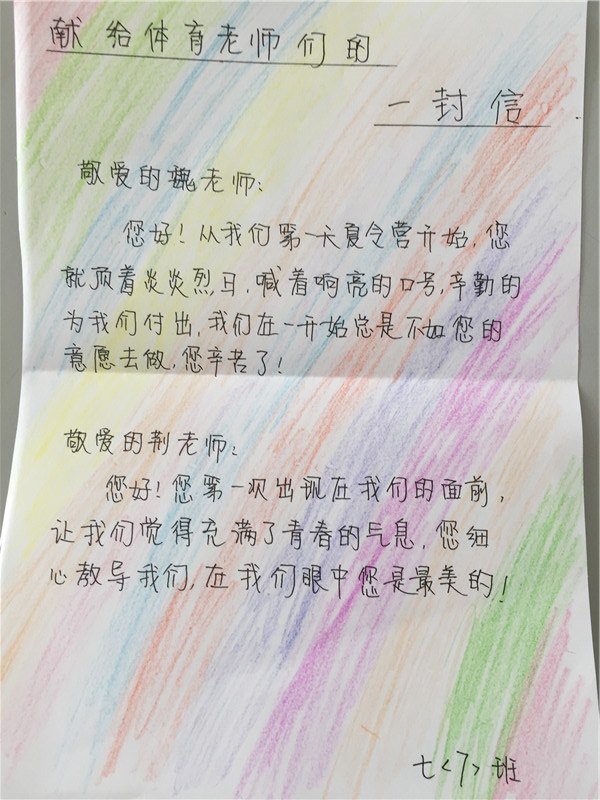 献给体育老师们的
一封信
敬爱的魏老师:
您好!从我们第一天夏令营开始,您
就顶着炎炎烈马,喊着响亮的口号,辛勤的
为我们付出,我们在一开始总是不如您的
意愿去做,您辛苦了!
敬爱的荆老师:
您好!您第一次出现在我们的面前,
让我们觉得充满了青春的气息,您细
心教导我们,在我们眼中您是最美的!
七<7>班